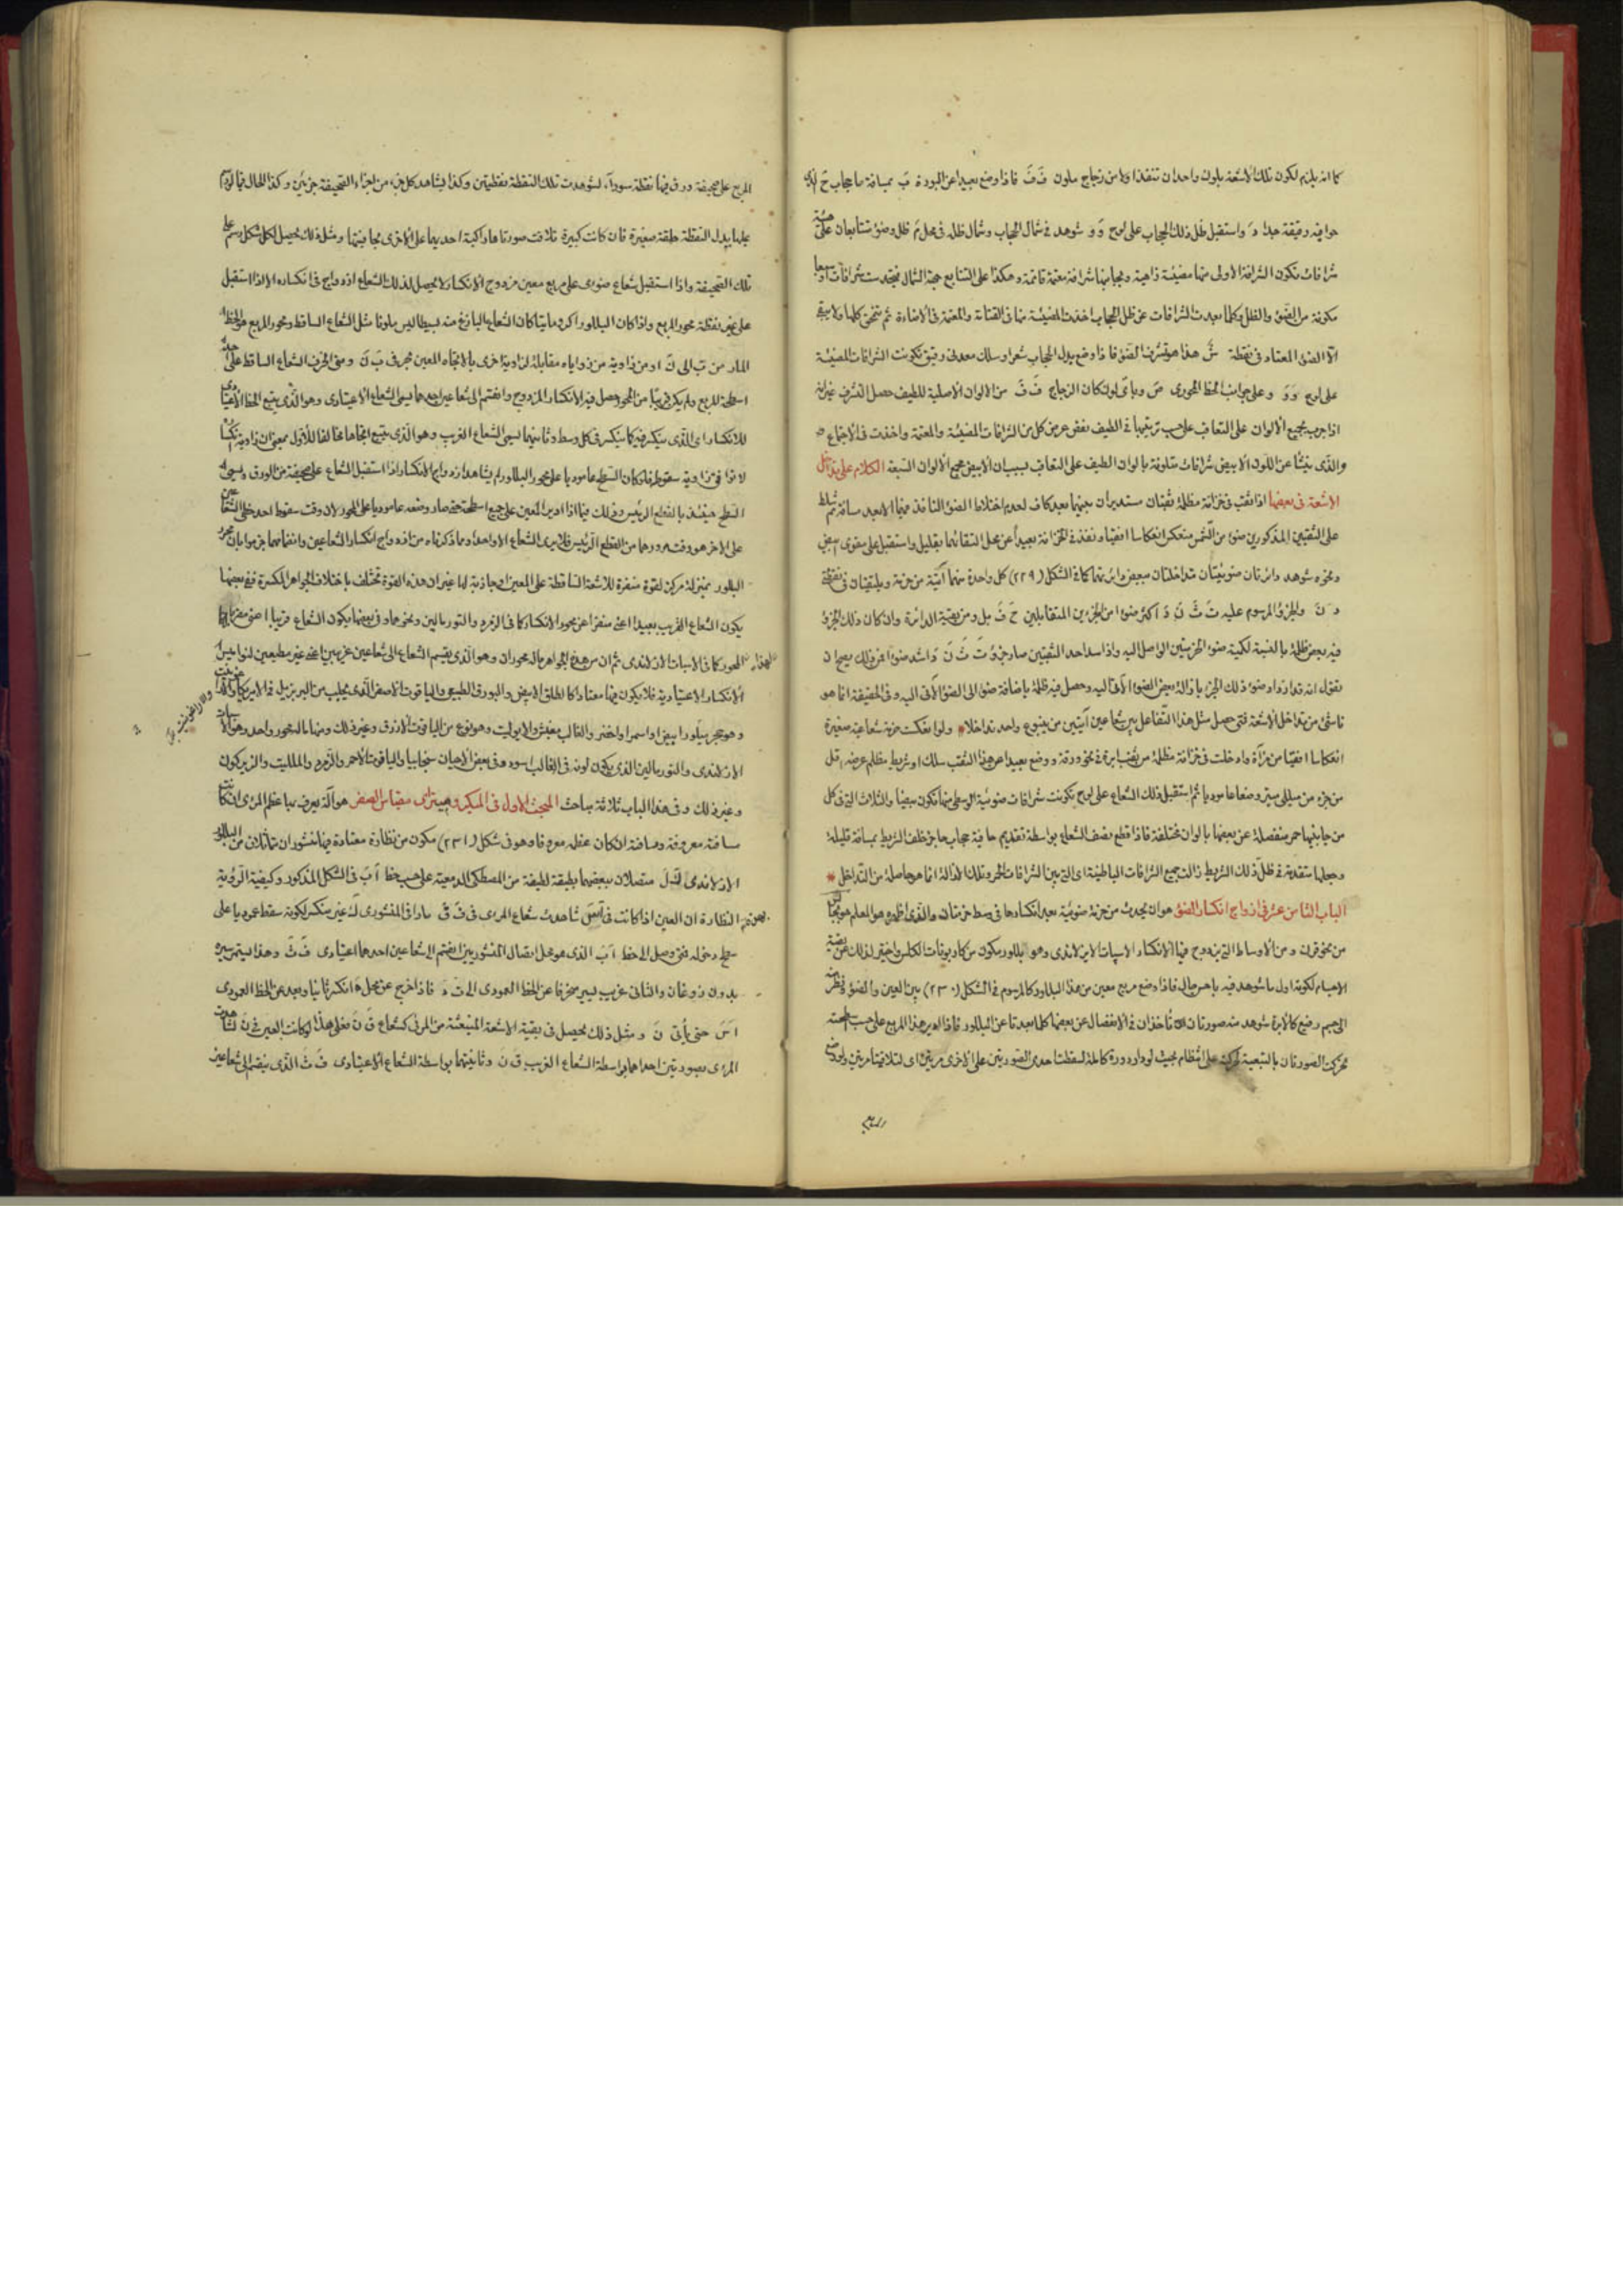 كما انه يلزم لكون تلك الاشعة بلون واحد ان تنفذ اولا من زجاج ملون فَ فَ فاذا وضع بعيدا عن البورة بَ بمسافة ما حجاب حَ
حوافيه دقيقة جدا واستقبل ظل ذلك الحجاب على لوح وَ وَ شوهد فى شمال الحجاب وشمال ظله فى محل ظل وضوء متتابعان على
شرافات تكون الشرافة الاولى منها مضيئة زاهية ومجانبها شرافة معتمة قاتمة وهكذا على التتابع جهة الشمال فتجد ست شرافات او سبعا
مكونة من الضوء والظل وكلما بعدت الشرافات عن ظل الحجاب اخذت المضيئة منها فى القتامة والمعتمة فى الاضاءة ثم تنمحق كلها ولا يبقى
الا الضوء المعتاد فى نقطة شَ هذا هو تشرف الضوء فاذا وضع بدل الحجاب شعر او سلك معدنى دقيق تكونت الشرافات المضيئة
على لوح وَ وَ وعلى جوانب الخط المحورى صَ وباى لون كان الزجاج فَ فَ من الالوان الاصلية للطيف حصل التشرف غير انه
اذا جرب بجميع الالوان على التعاقب على حسب ترتيبها فى الطيف نقص عرض كل من الشرافات المضيئة والمعتمة واخذت فى الاجتماع
والذى ينشأ عن اللون الابيض شرافات متلونة بالوان الطيف على التعاقب بسبب ان الابيض مجمع الالوان السبعة الكلام على تداخل
الاشعة فى بعضها اذا ثقب فى خزانة مظلمة ثقبان مستديران بينهما بعد كاف لعدم اختلاط الضوء النافذ منهما الا بعد مسافة ثم سلط
على الثقبين المذكورين ضوء من الشمس منعكس انعكاسا افقيا ونفذ فى الخزانة بعيدا عن محل التقائهما بقليل واستقبل على مقوى ابيض
ونحوه شوهد دائرتان ضوئيتان متداخلتان ببعض دائرتهما كما فى الشكل (٢٢٩) كل واحدة منهما آتية من حزمة ويلتقيان فى نقطة
دَ نَ والجزء المرسوم عليه تَ ثَ نَ دَ اكثر ضوءا من الجزئين المتقابلين حَ فَ بل ومن بقية الدائرة وان كان ذلك الجزء
فيه بعض ظلمة بالنسبة لكمية ضوء الحزمتين الواصل اليه واذا سد احد الثقبين صار جزء تَ ثَ نَ دَ اشد ضوءا فمن ذلك يصح ان
نقول انه قد ازداد ضوء ذلك الجزء بازالة بعض الضوء الآتى اليه وحصل فيه ظلمة باضافة ضوء الى الضوء الآتى اليه وفى الحقيقة انما هو
ناشئ من تداخل الاشعة فمتى حصل مثل هذا التفاعل بين شعاعين آتيين من ينبوع واحد تداخلا ولو انعكست حزمة شعاعية صغيرة
انعكاسا افقيا من مرآة وادخلت فى خزانة مظلمة من ثقب ابرة فى نحو ورقة ووضع بعيدا عن هذا الثقب سلك او شريط مظلم عرضه اقل
من جزء من ميللى ميتر وضعا عاموديا ثم استقبل ذلك الشعاع على لوح تكونت شرافات ضوئية الوسطى منها تكون بيضا والثلاث التى فى كل
من جانبيها حمر منفصلة عن بعضها بالوان مختلفة فاذا قطع نصف الشعاع بواسطة تقديم حافة حجاب حاجز خلف الشريط بمسافة قليلة
وجعلها متقدمة فى ظل ذلك الشريط زالت جميع الشرافات الباطنية اى التى بين الشرافات الحمر وتلك الازالة انما هى حاصلة من التداخل
الباب الثامن عشر فى ازدواج انكسار الضوء هو ان يحدث من حزمة ضوئية بعد انكسارها فى وسط حزمتان والذى اظهره هو المعلم هويجانس
من نحو قرن ومن الاوساط التى يزدوج فيها الانكسار الاسبات الايزلاندى وهو بللور مكون من كاربونات الكلس واختير لذلك عن بقية
الاجسام لكونه اول ما شوهد فيه باهر حاله فاذا وضع مربع معين من هذا البللور كالمرسوم فى الشكل (٢٣٠) بين العين والضوء فنظر منه
الى جسم رفيع كالابرة شوهد منه صورتان تأخذان فى الانفصال عن بعضها كلما بعدتا عن البللور فاذا ادير هذا المربع على حسب سطحته
تحركت الصورتان بالتبعية لحركته على انتظام بحيث لو دار دورة كاملة لسقطت احدى الصورتين على الاخرى مرتين اى لتلاقيتا مرتين ولو وضع
المربع
المربع على صحيفة ورق فيها نقطة سوداء لشوهدت تلك النقطة نقطتين وكذا يشاهد كل جزء من اجزاء الصحيفة جزئين وكذا الحال فيما لو رسم
عليها بدل النقطة حلقة صغيرة فان كانت كبيرة تلاقت صورتاها راكبة احديهما على الاخرى بجافتيها ومثل ذلك يحصل لكل شكل رسم على
تلك الصحيفة واذا استقبل شعاع ضوئى على مربع معين مزدوج الانكسار لا يحصل لذلك الشعاع ازدواج فى انكساره الا اذا استقبل
على غير نقطة محور المربع واذا كان البللور اكروماتيا كان الشعاع البازغ منه بسيطا ليس ملونا مثل الشعاع الساقط ومحور المربع هو الخط
المار من تَ الى كَ او من زاوية من زواياه مقابلة لزاوية اخرى بالاتجاه المعين فى فَ بَ نَ ومتى انحرف الشعاع الساقط على احد
اسطحة المربع ولم يكن قريبا من المحور حصل فيه الانكسار المزدوج وانقسم الى شعاعين احدهما يسمى الشعاع الاعتيادى وهو الذى يتبع الخط الاعتيادى
للانكسار اى الذى ينكسر فيه كما ينكسر فى كل وسط وثانيهما يسمى الشعاع الغريب وهو الذى يتبع اتجاها مخالفا للاول بمعنى ان زاوية انكساره
لا توافق زاوية سقوطه فلو كان السطح عاموديا على محور البللور لم يشاهد ازدواج الانكسار اذا استقبل الشعاع على صحيفة من الورق ويسمى
السطح حينئذ بالقطع الرئيس وذلك فيما اذا ادير المعين على جميع اسطحته حتى صار وضعه عاموديا على المحور لان وقت سقوط احد خطى الشعاعين
على الاخر هو وقت مرورهما من القطع الرئيس فلا يرى الشعاع الا واحدا وما ذكرناه من ازدواج انكسار الشعاعين وانقسامهما جزموا بان محور
البللور بمنزلة مركز لقوة منفرة للاشعة الساقطة على المعين او جاذبة لها غير ان هذه القوة تختلف باختلاف الجواهر المكسرة ففى بعضها
يكون الشعاع الغريب بعيدا اعنى منفرا عن محور الانكسار كما فى الزمرد والتورمالين ونحوهما وفى بعضها يكون الشعاع قريبا
المحور كما فى الاسبات الازلندى ثم ان من هذه الجواهر ماله محوران وهو الذى ينقسم الشعاع الى شعاعين غريبين اعنى غير مطيعين لنواميس
الانكسار الاعتيادية فلا يكون فيها معتادا كالطلق الابيض والبورق الطبيعى والياقوت الاصفر الذى يجلب من البريزيل
وهو حجر يبلور ابيض او اسمر او اخضر والغالب بنفش والايوليت وهو نوع من الياقوت الازرق وغير ذلك ومنها ماله محور واحد وهو الاسبات
الازلندى والتورمالين الذى يكون لونه فى الغالب اسود وفى بعض الاحيان سنجابيا والياقوت الاحمر والزمرد والمللیت والزيركون
وغير ذلك وفى هذا الباب ثلاثة مباحث المبحث الاول فى الميكروميتر اى مقياس الصغر هو آلة يعرف بها عظم المرئ ان كانت
مسافته معروفة ومسافته ان كان عظمه معروفا وهو فى شكل (٢٣١) مكون من نظارة معتادة فيها منشوران متماثلان من البللور
الازلاندى متصلان ببعضهما بطبقة لطيفة من المصطكى الدمعية على حسب خط اَ بَ فى الشكل المذكور وكيفية الرؤية
النظارة ان العين اذا كانت فى شاهدت شعاع المرئ فى فَ قَ مارا فى المنشور غير منكسر لكونه سقط عموديا على
سطح دخوله فمتى وصل الى خط اَ بَ الذى هو محل اتصال المنشورين انقسم الى شعاعين احدهما اعتيادى فَ ثَ وهذا يستمر سيره
بدون زوغان والثانى غريب يسير منحرفا عن الخط العمودى الى فَ دَ فاذا خرج عن محل دَ انكسر ثانيا وبعد عن الخط العمودى
اَ سَ حتى يأتى نَ ومثل ذلك يحصل فى بقية الاشعة المنبعثة من المرئى كشعاع قَ نَ فعلى هذا لو كانت العين فى نَ لشاهدت
المرئ بصورتين احداهما بواسطة الشعاع الغريب قَ نَ وثانيتهما بواسطة الشعاع الاعتيادى فَ ثَ الذى ينقسم الى شعاعين